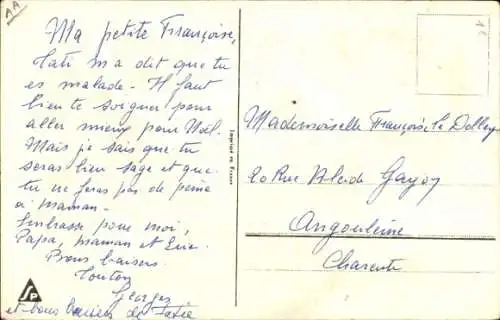 AA
Ma petite Françoise,
Tati m'a dit que tu
es malade - Il faut
bien te soigner pour
aller mieux pour Noël.
Mais je sais que tu
seras bien sage et que
tu ne feras pas de peine
à Maman -
Embrasse pour moi,
Papa, maman et
Bons baisers.
Tonton
Georges
et bons baisers de Tatie
Imprimé en France
Mademoiselle Françoise
20 Rue
Angoulême
Charente